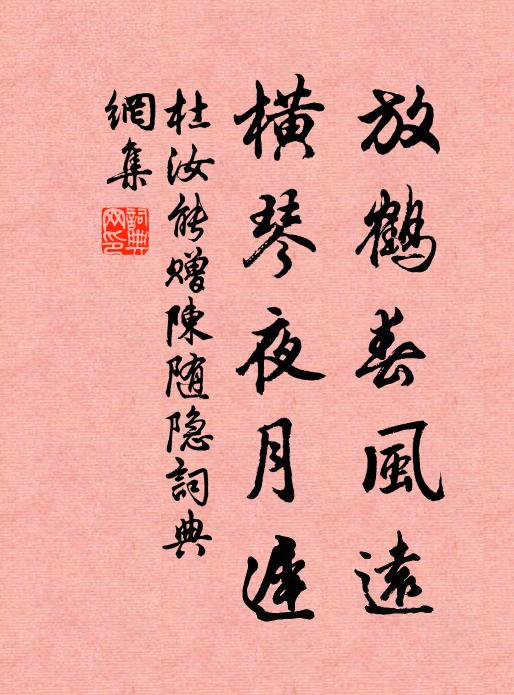 放鶴春風遠
橫琴夜月遲
杜汝能赠陳随隐詞典
網集
詞典網印